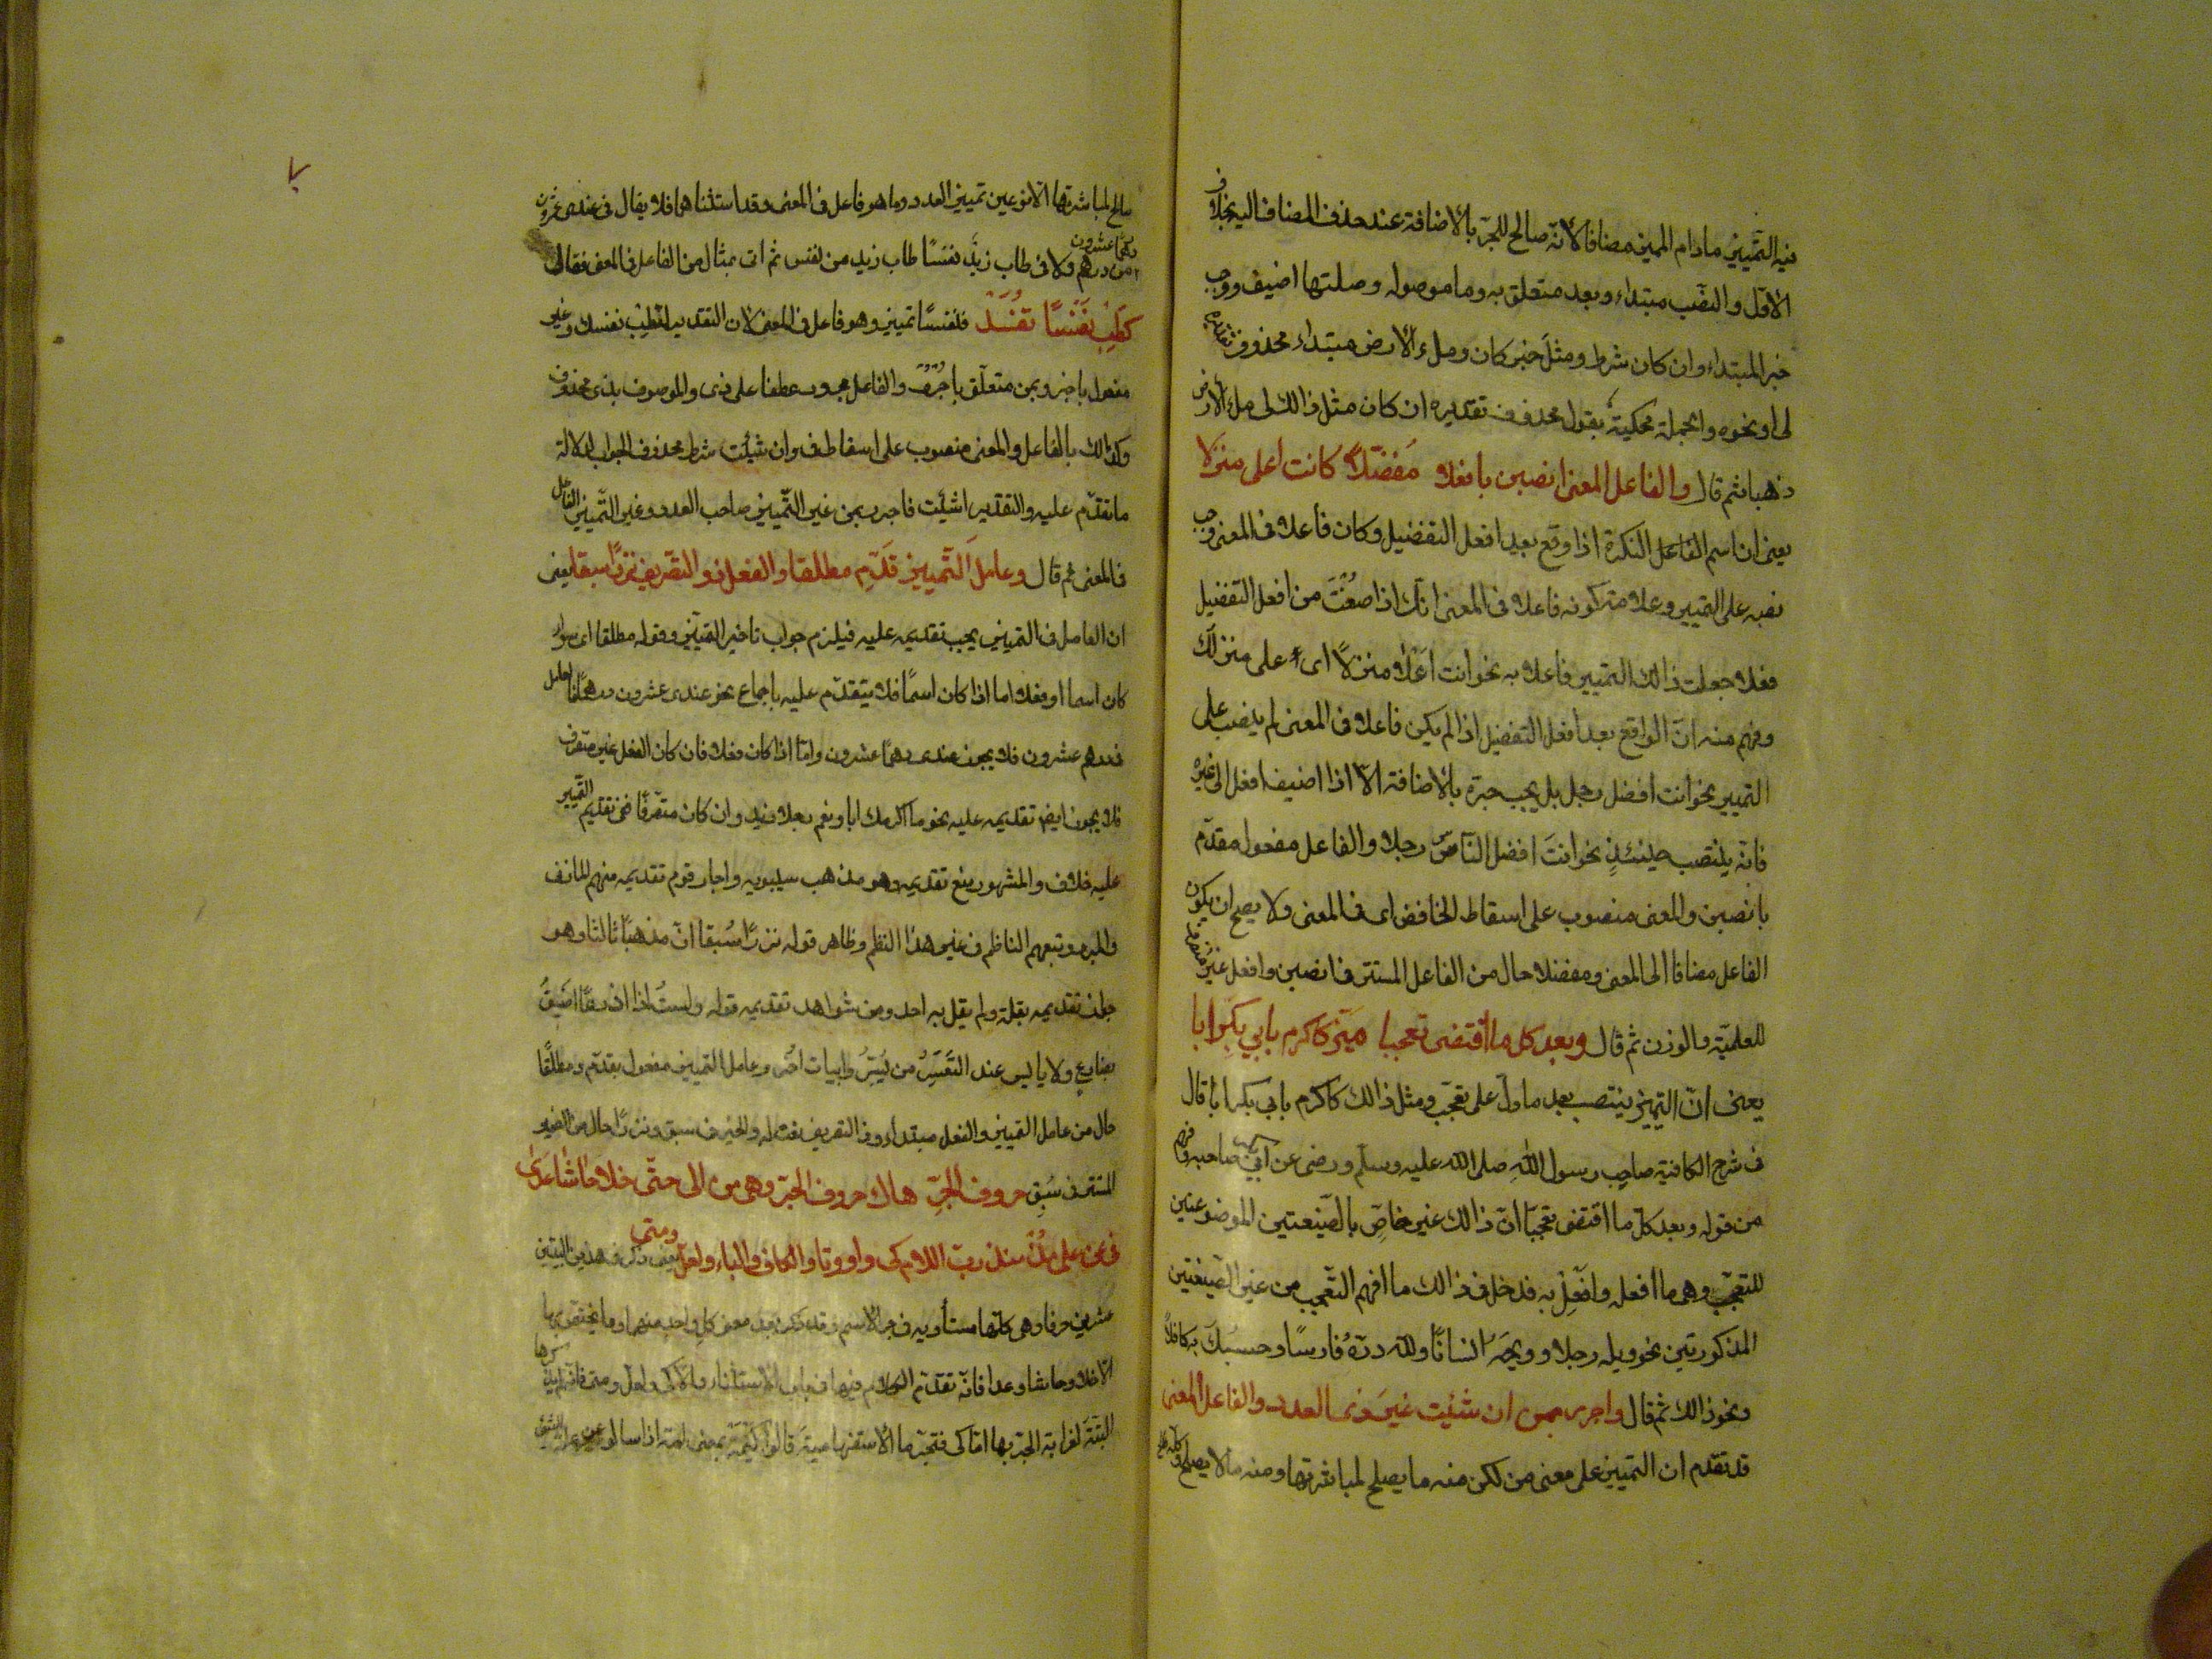 فيه التمييز مادام المميز مضافا لأنه صالح للجر بالأضافة عند حذف المضاف اليه بخلاف
الأول والنصب مبتداء وبعد متعلق به وما موصوله وصلتها اضيف ووجب
خبر المبتداء وان كان شرط ومثل خبر كان وملء الأرض مبتداء محذوف
لى او نحوه والجملة محكية بقول محذوف تقديره ان كان مثل ذالك لى ملء الأرض
ذهبا ثم قال والفاعل المعنى انصبن بافعلا مفضلا كانت اعلى منزلا
يعنى ان اسم الفاعل النكرة اذا وقع بعد افعل التفضيل وكان فاعلا فى المعنى وجب
نصبه على التمييز وعلامة كونه فاعلا فى المعنى انك اذا صغت من افعل التفضيل
فعلا جعلت ذالك التمييز فاعلا به نحو انت اعلا منزلا اى على منزلك
وفهم منه ان الواقع بعد افعل التفضيل اذا لم يكن فاعلا فى المعنى لم ينصب على
التمييز نحو انت افضل رجل بل يجب جره بالأضافة الا اذا اضيف افعل الى غيره
فانه ينتصب حينئذ نحو انت افضل الناس رجلا والفاعل مفعول مقدم
بانصبن والمعنى منصوب على اسقاط الخافض اى فى المعنى ولا يصح ان يكون
الفاعل مضافا الى المعنى ومفضلا حال من الفاعل المستتر فى انصبن وافعل غير منصرف
للعلمية والوزن ثم قال وبعد كل ما اقتضى تعجبا ميز كاكرم بابي بكر ابا
يعنى ان التمييز ينتصب بعد ما دل على تعجب ومثل ذالك كاكرم بابي بكر ابا قال
فى شرح الكافية صاحب رسول الله صلى الله عليه وسلم ورضى عن صاحبه وفهم
من قوله وبعد كل ما اقتضى تعجبا ان ذالك غير خاص بالصيغتين الموضوعتين
للتعجب وهى ما افعله وافعل به فدخل فى ذالك ما افهم التعجب من غير الصيغتين
المذكورتين نحو ويله رجلا وويحه انسانا ولله دره فارسا وحسبك به كافلا
ونحو ذالك ثم قال واجرر بمن ان شئيت غير ذى العدد والفاعل المعنى
قد تقدم ان التمييز على معنى من لكن منه ما يصلح لمباشرتها ومنه ما لا يصلح وكله
صالح لمباشرتها الا نوعين تمييز العدد وما هو فاعل فى المعنى وقد استثناهما فلا يقال فى عندى عشرون
درهما عشرون من درهم ولا فى طاب زيد نفسا طاب زيد من نفس ثم اتى بمثال من الفاعل فى المعنى فقال
كطب نفسا تفد فنفسا تمييز وهو فاعل فى المعنى لان التقدير لتطب نفسك وغير
مفعول باجرر وبمن متعلق باجرر والفاعل مجرور عطفا على ذى والموصوف بذى محذوف
وكذالك بالفاعل والمعنى منصوب على اسقاط فى وان شئت شرط محذوف الجواب لدلالة
ما تقدم عليه والتقدير ا شئيت فاجرر بمن غير التمييز صاحب العدد وغير التمييز الفاعل
فى المعنى ثم قال وعامل التمييز قدم مطلقا والفعل ذو التصريف نزرا سبقا يعنى
ان العامل فى التمييز يجب تقديمه عليه فيلزم جواب تاخير التمييز وقوله مطلقا اى سواء
كان اسما او فعلا اما اذا كان اسما فلا يتقدم عليه باجماع نحو عندى عشرون درهما
فدرهم عشرون فلا يجوز عندى درهما عشرون واما اذا كان فعلا فان كان الفعل غير متصرف
فلا يجوز ايض تقديمه عليه نحو ما اكرمك ابا ونعم رجلا زيد وان كان متصرفا ففى تقديم التمييز
عليه خلاف والمشهور منع تقديمه وهو مذهب سيبويه واجاز قوم تقديمه منهم المازنى
والمبرد وتبعهم الناظم فى غير هذا النظم وظاهر قوله نزرا سبقا ان مذهبا ثالثا وهو
جواز تقديمه بقلة ولم يقل به احد ومن شواهد تقديمه قوله ولست اذا ذرعا اضيق
بضارع ولا يايس عند التعسر من يسر وابيات اخر وعامل التمييز مفعول بقدم ومطلقا
حال من عامل التمييز والفعل مبتداء وذو التصريف نعت له والخبر فى سبق ونزرا حال من الضمير
المستتر فى سبق حروف الجر هاك حروف الجر وهى من الى حتى خلا حاشا عدى
فى عن على مذ منذ رب اللام كى واو وتا والكاف والباء ولعل ومتى يعنى ذكر فى هذين البيتين
عشرين حرفا وهى كلها مستأويه فى جر الاسم وقد ذكر بعد معنى كل واحد منهما وما يختص بها
الا خلا وحاشا وعدا فانه تقدم الكلام فيها فى باب الاستثناء والا كى ولعل ومتى
البتة لغرابة الجر بها اما كى فتجر ما الاستفهامية قالوا كيمه بمعنى لمه اذا سالوا عن علة الشئ